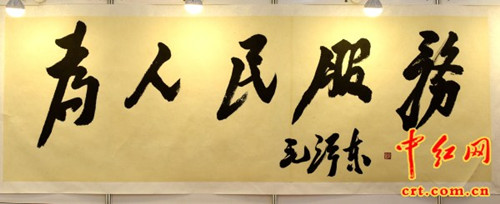 為人民服務
毛泽东
中红网
crt.com.cn